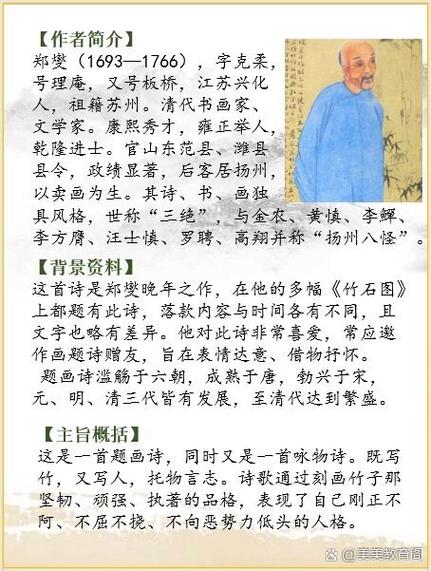 【作者简介】
郑燮（1693—1766），字克柔，
号理庵，又号板桥，江苏兴化
人，祖籍苏州。清代书画家、
文学家。康熙秀才，雍正举人，
乾隆进士。官山东范县、潍县
县令，政绩显著，后客居扬州，
以卖画为生。其诗、书、画独
具风格，世称“三绝”，与金农、黄慎、李鱓、
李方膺、汪士慎、罗聘、高翔并称“扬州八怪”。
【背景资料】
这首诗是郑燮晚年之作，在他的多幅《竹石图》
上都题有此诗，落款内容与时间各有不同，且
文字也略有差异。他对此诗非常喜爱，常应邀
作画题诗赠友，旨在表情达意、借物抒怀。
题画诗滥觞于六朝，成熟于唐，勃兴于宋，
元、明、清三代皆有发展，至清代达到繁盛。
【主旨概括】
这是一首题画诗，同时又是一首咏物诗。既写
竹，又写人，托物言志。诗歌通过刻画竹子那
坚韧、顽强、执著的品格，表现了自己刚正不
阿、不屈不挠、不向恶势力低头的人格。
美美教育阁